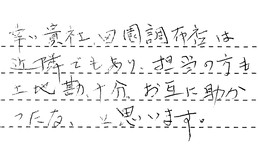 幸い貴社、田園調布店は
近隣でもあり、担当の方も
土地勘十分、お互に助か
ったな、と思います。